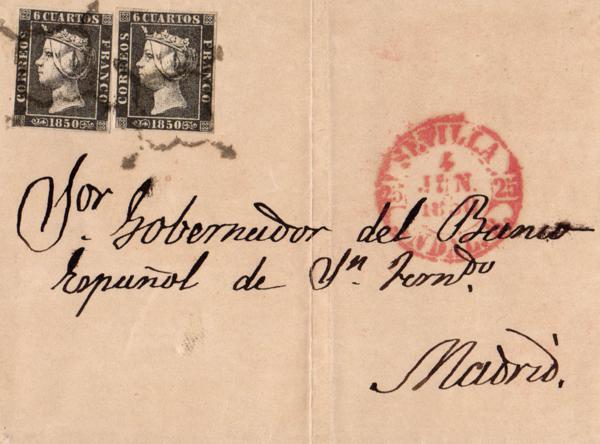 6 CUARTOS
CORREOS
FRANCO
1850
6 CUARTOS
CORREOS
FRANCO
1850
SEVILLA
4
JUN.
25 25
Sor. Gobernador del Banco
Español de Sn. Ferndo.
Madrid.